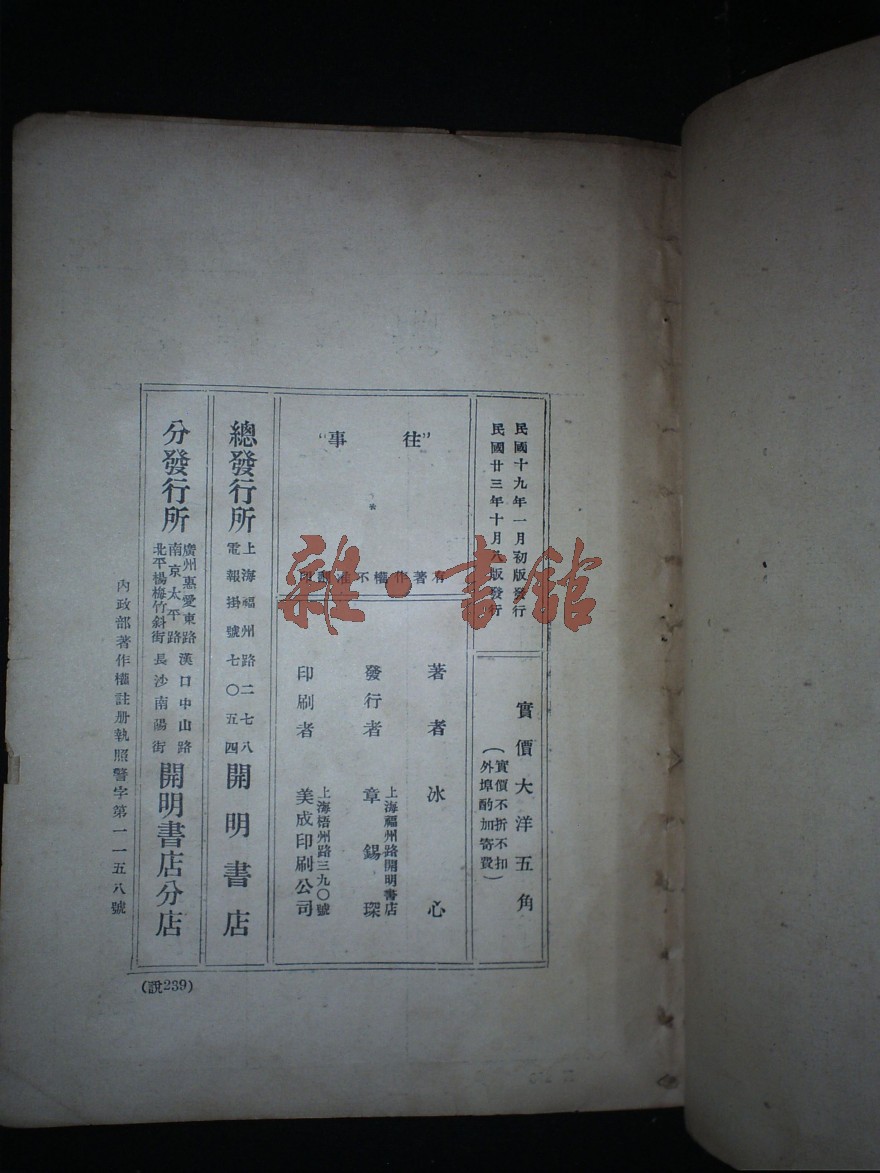 民國十九年一月初版發行
民國廿三年十月八版發行
實價大洋五角
(實價不折不扣
外埠酌加寄費)
"往事"
有著作權不准翻印
著者冰心
發行者
上海福州路開明書店
章錫琛
印刷者
上海梧州路三九〇號
美成印刷公司
總發行所
上海福州路二七八
電報掛號七〇五四
開明書店
分發行所
廣州惠愛東路 漢口中山路
南京太平路
北平楊梅竹斜街 長沙南陽街
開明書店分店
內政部著作權註册執照警字第一一五八號
(說239)
雜·書館